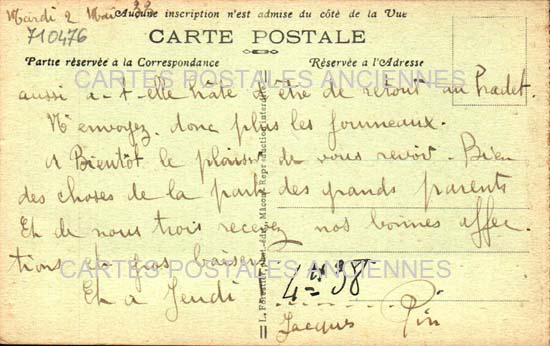 Mardi 2 Mai 22
Aucune inscription n'est admise du côté de la Vue
710476
CARTE POSTALE
Partie réservée à la Correspondance
Réservée à l'Adresse
CARTES POSTALES ANCIENNES
aussi a-t-elle hâte d'être de retour au Pradet.
N'envoyez donc plus les journeaux.
A Bientôt le plaisir de vous revoir. Bien
des choses de la part des grands parents
Et de nous trois recevez nos bonnes affec
tions et gros baisers
CARTES POSTALES ANCIENNES
Et à Jeudi
4 38
Jacques Pin
Reproduction interdite